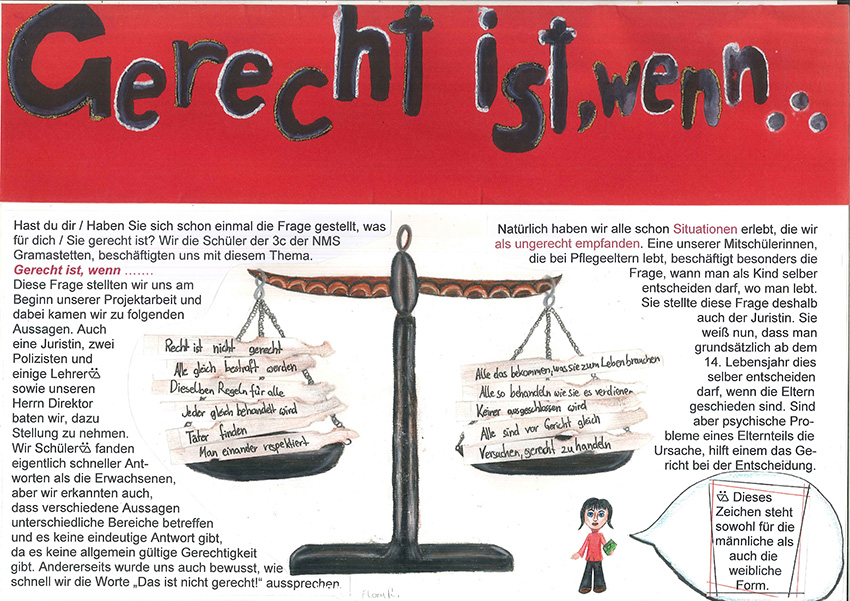 Gerecht ist, wenn...
Hast du dir / Haben Sie sich schon einmal die Frage gestellt, was
für dich / Sie gerecht ist? Wir die Schüler der 3c der NMS
Gramastetten, beschäftigten uns mit diesem Thema.
Gerecht ist, wenn .......
Diese Frage stellten wir uns am
Beginn unserer Projektarbeit und
dabei kamen wir zu folgenden
Aussagen. Auch
eine Juristin, zwei
Polizisten und
einige Lehrer
sowie unseren
Herrn Direktor
baten wir, dazu
Stellung zu nehmen.
Wir Schüler fanden
eigentlich schneller Ant-
worten als die Erwachsenen,
aber wir erkannten auch,
dass verschiedene Aussagen
unterschiedliche Bereiche betreffen
und es keine eindeutige Antwort gibt,
da es keine allgemein gültige Gerechtigkeit
gibt. Andererseits wurde uns auch bewusst, wie
schnell wir die Worte „Das ist nicht gerecht!“ aussprechen.
Recht ist nicht gerecht
Alle gleich bestraft werden
Dieselben Regeln für alle
Jeder gleich behandelt wird
Täter finden
Man einander respektiert
Alle das bekommen, was sie zum Leben brauchen
Alle so behandeln wie sie es verdienen
Keiner ausgeschlossen wird
Alle sind vor Gericht gleich
Versuchen, gerecht zu handeln
Natürlich haben wir alle schon Situationen erlebt, die wir
als ungerecht empfanden. Eine unserer Mitschülerinnen,
die bei Pflegeeltern lebt, beschäftigt besonders die
Frage, wann man als Kind selber
entscheiden darf, wo man lebt.
Sie stellte diese Frage deshalb
auch der Juristin. Sie
weiß nun, dass man
grundsätzlich ab dem
14. Lebensjahr dies
selber entscheiden
darf, wenn die Eltern
geschieden sind. Sind
aber psychische Pro-
bleme eines Elternteils die
Ursache, hilft einem das Ge-
richt bei der Entscheidung.
Dieses
Zeichen steht
sowohl für die
männliche als
auch die
weibliche
Form.